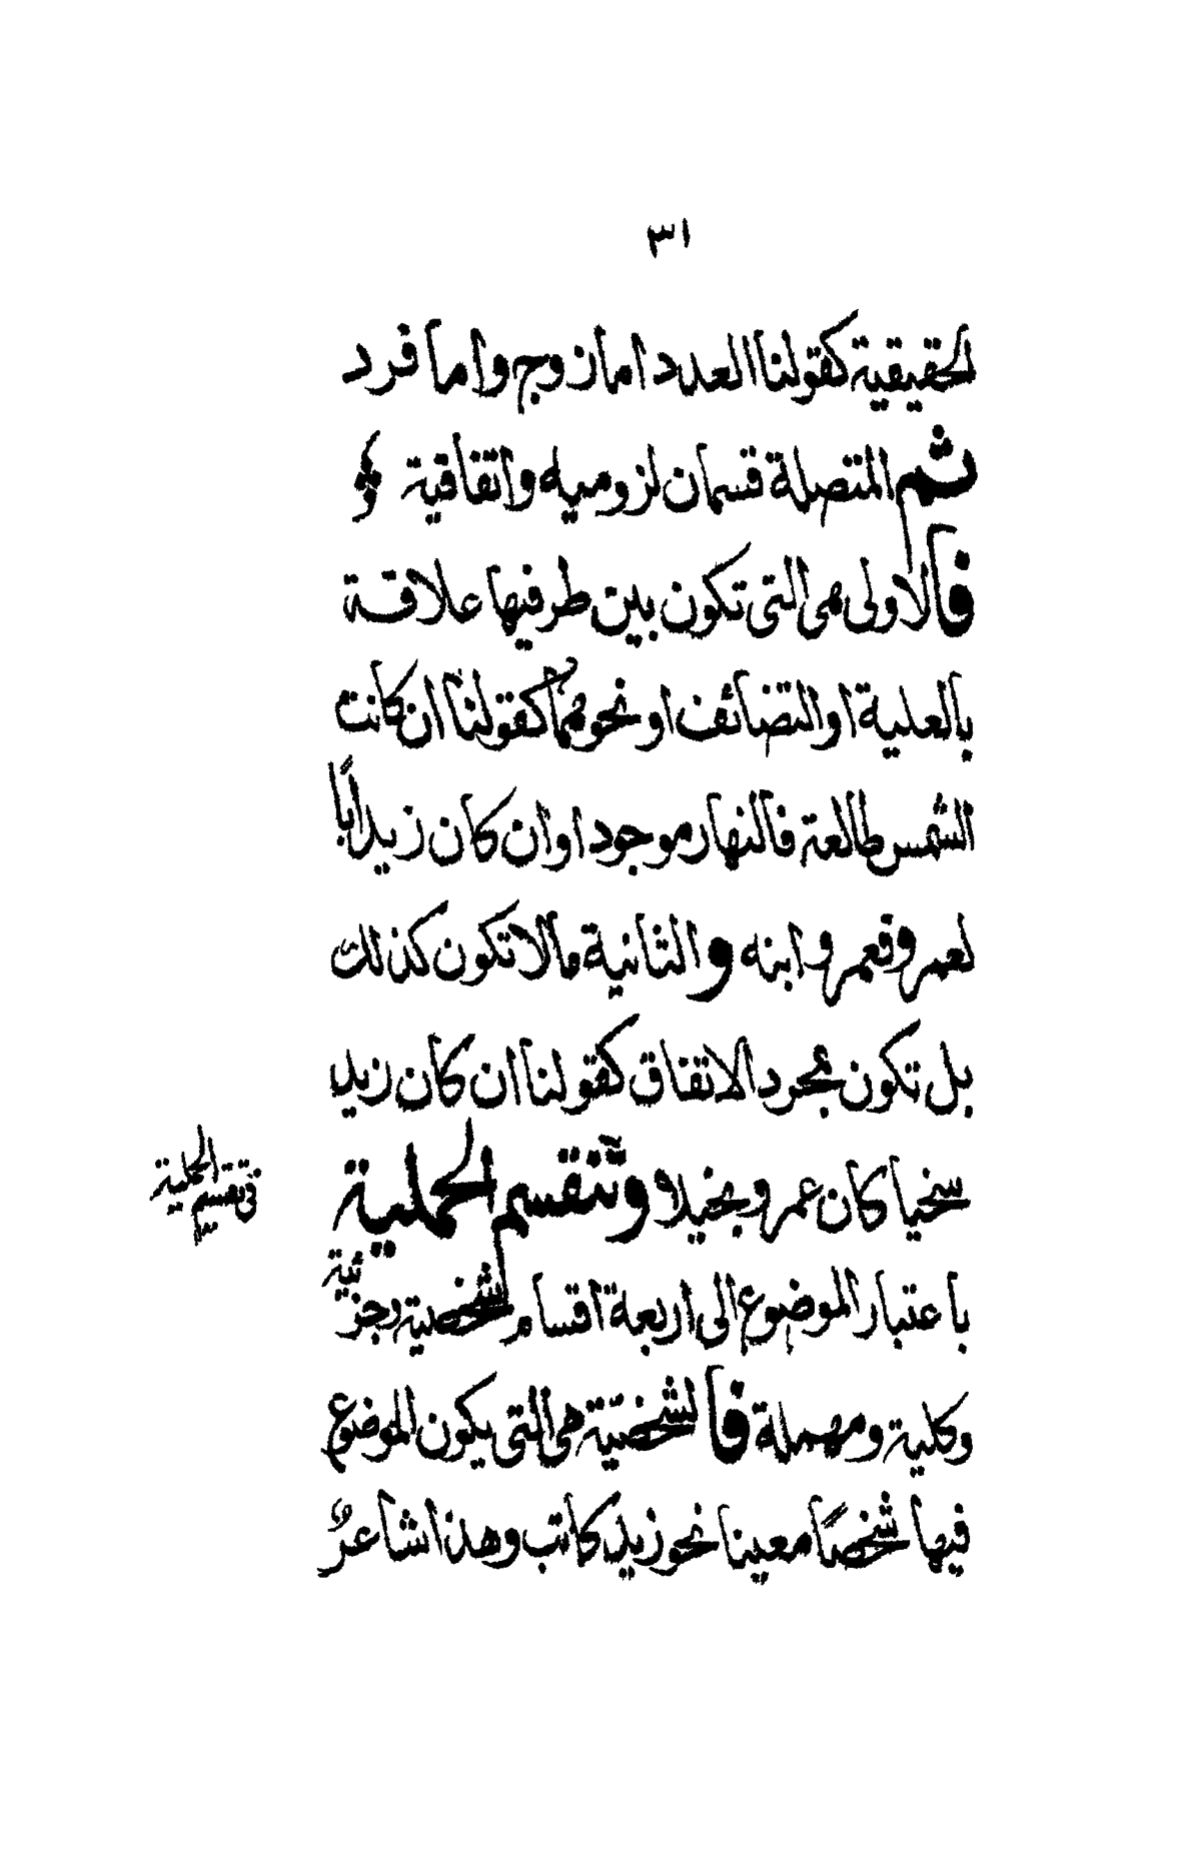 ٣١
الحقيقية كقولنا العدد اما زوج واما فرد
ثم المتصلة قسمان لزوميه واتفاقية
فالاولى هى التى تكون بين طرفيها علاقة
بالعلية او التضائف او نحوهما كقولنا ان كانت
الشمس طالعة فالنهار موجود او ان كان زيد اباً
لعمرو فعمرو ابنه والثانية مالا تكون كذلك
بل تكون بمجرد الاتفاق كقولنا ان كان زيد
سخيا كان عمرو بخيلا وتنقسم الحملية
فى تقسيم الحملية
باعتبار الموضوع الى اربعة اقسام شخصية وجزئية
وكلية ومهملة فالشخصيّة هى التى يكون الموضوع
فيها شخصًا معينا نحو زيد كاتب وهذا شاعرٌ